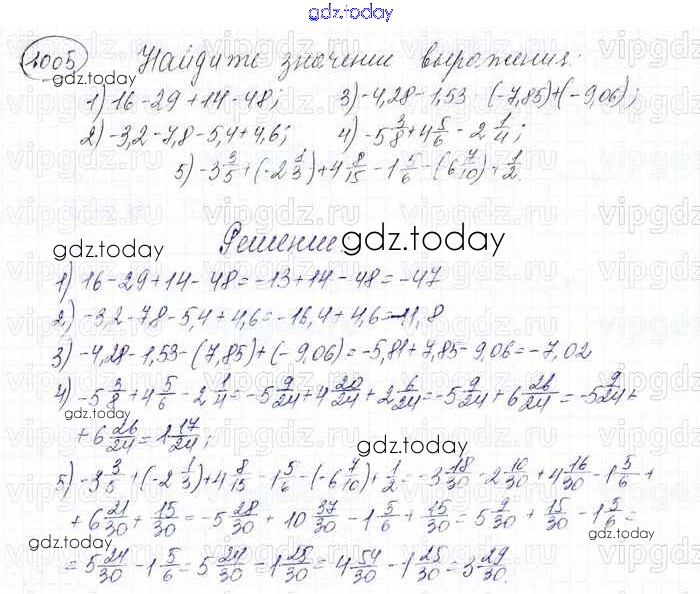 gdz.today
1005 Найдите значение выражения:
1) 16-29+14-48; 3) -4,28-1,53-(-7,85)+(-9,06);
2) -3,2-7,8-5,4+4,6; 4) -5 3/8+4 5/6-2 1/4;
5) -3 3/5+(-2 1/3)+4 8/15-1 5/6-(6 7/10)+1/2.
Решение:
1) 16-29+14-48=-13+14-48=-47
2) -3,2-7,8-5,4+4,6=-16,4+4,6=-11,8
3) -4,28-1,53-(7,85)+(-9,06)=-5,81+7,85-9,06=-7,02
4) -5 3/8+4 5/6-2 1/4=-5 9/24+4 20/24+2 6/24=-5 9/24+6 26/24=-5 9/24+
+6 26/24=1 17/24;
5) -3 3/5+(-2 1/3)+4 8/15-1 5/6-(-6 7/10)+1/2=-3 18/30-2 10/30+4 16/30-1 5/6+
+6 21/30+15/30=-5 28/30+10 37/30-1 5/6+15/30=5 9/30+15/30-1 5/6=
=5 24/30-1 5/6=5 24/30-1 25/30=4 54/30-1 25/30=3 29/30.
gdz.today
gdz.today
gdz.today
gdz.today
gdz.today
gdz.today
gdz.today
gdz.today